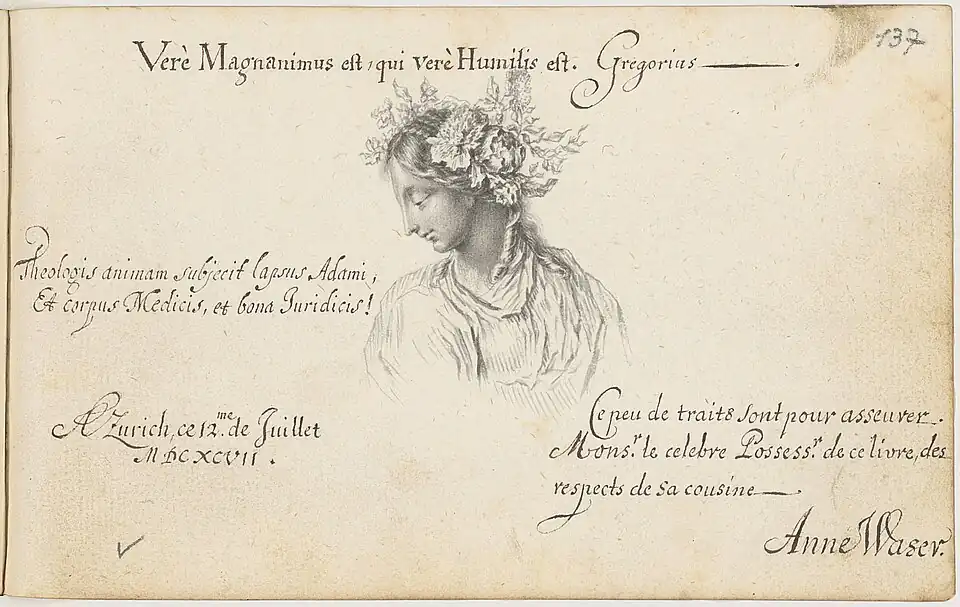 137
Verè Magnanimus est, qui verè Humilis est. Gregorius.
Theologis animam subjecit lapsus Adami,
Et corpus Medicis, et bona Juridicis!
A Zurich, ce 12.me de Juillet
MDCXCVII.
Ce peu de traits sont pour asseurer
Mons.r le celebre Possess.r de ce livre, des
respects de sa cousine
Anne Waser.